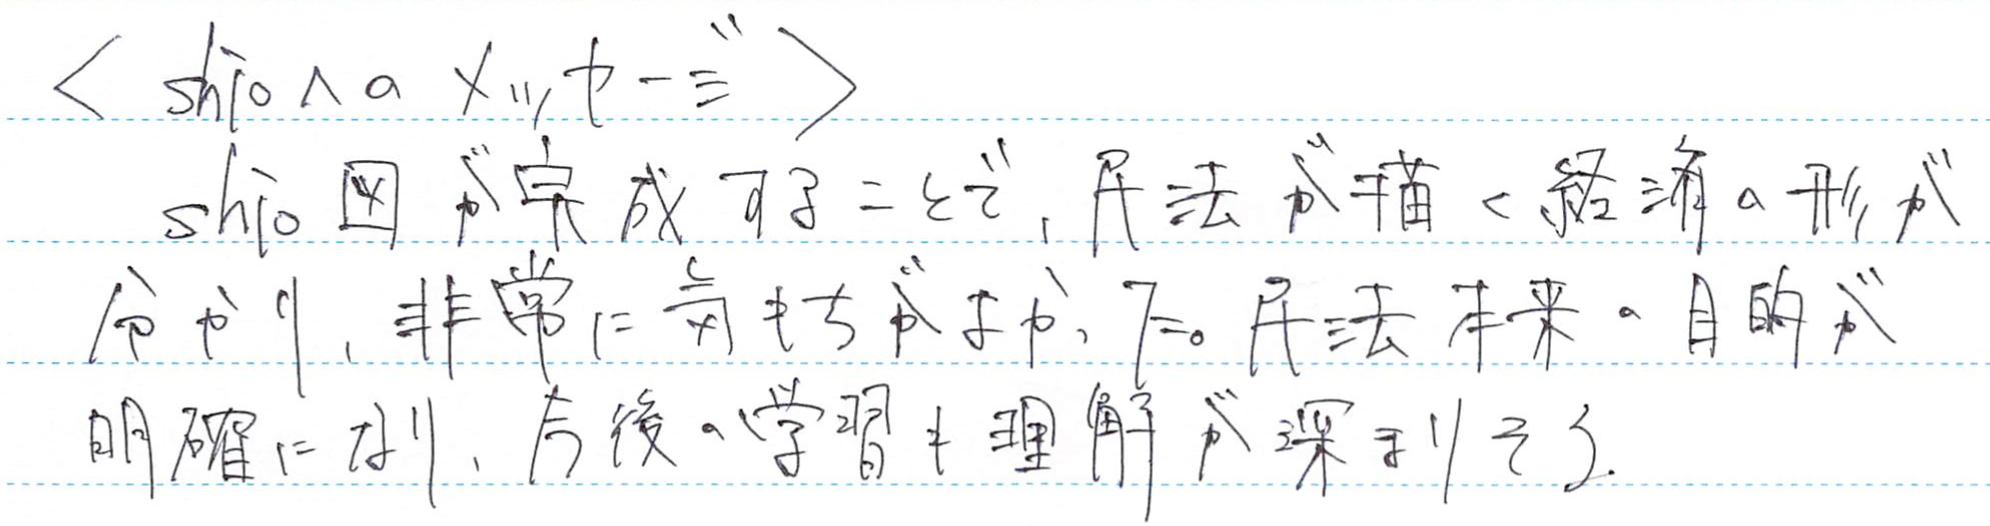 < shioへのメッセージ >
shio図が完成することで、民法が描く経済の形が
分かり、非常に気もちがよかった。民法本来の目的が
明確になり、今後の学習も理解が深まりそう.